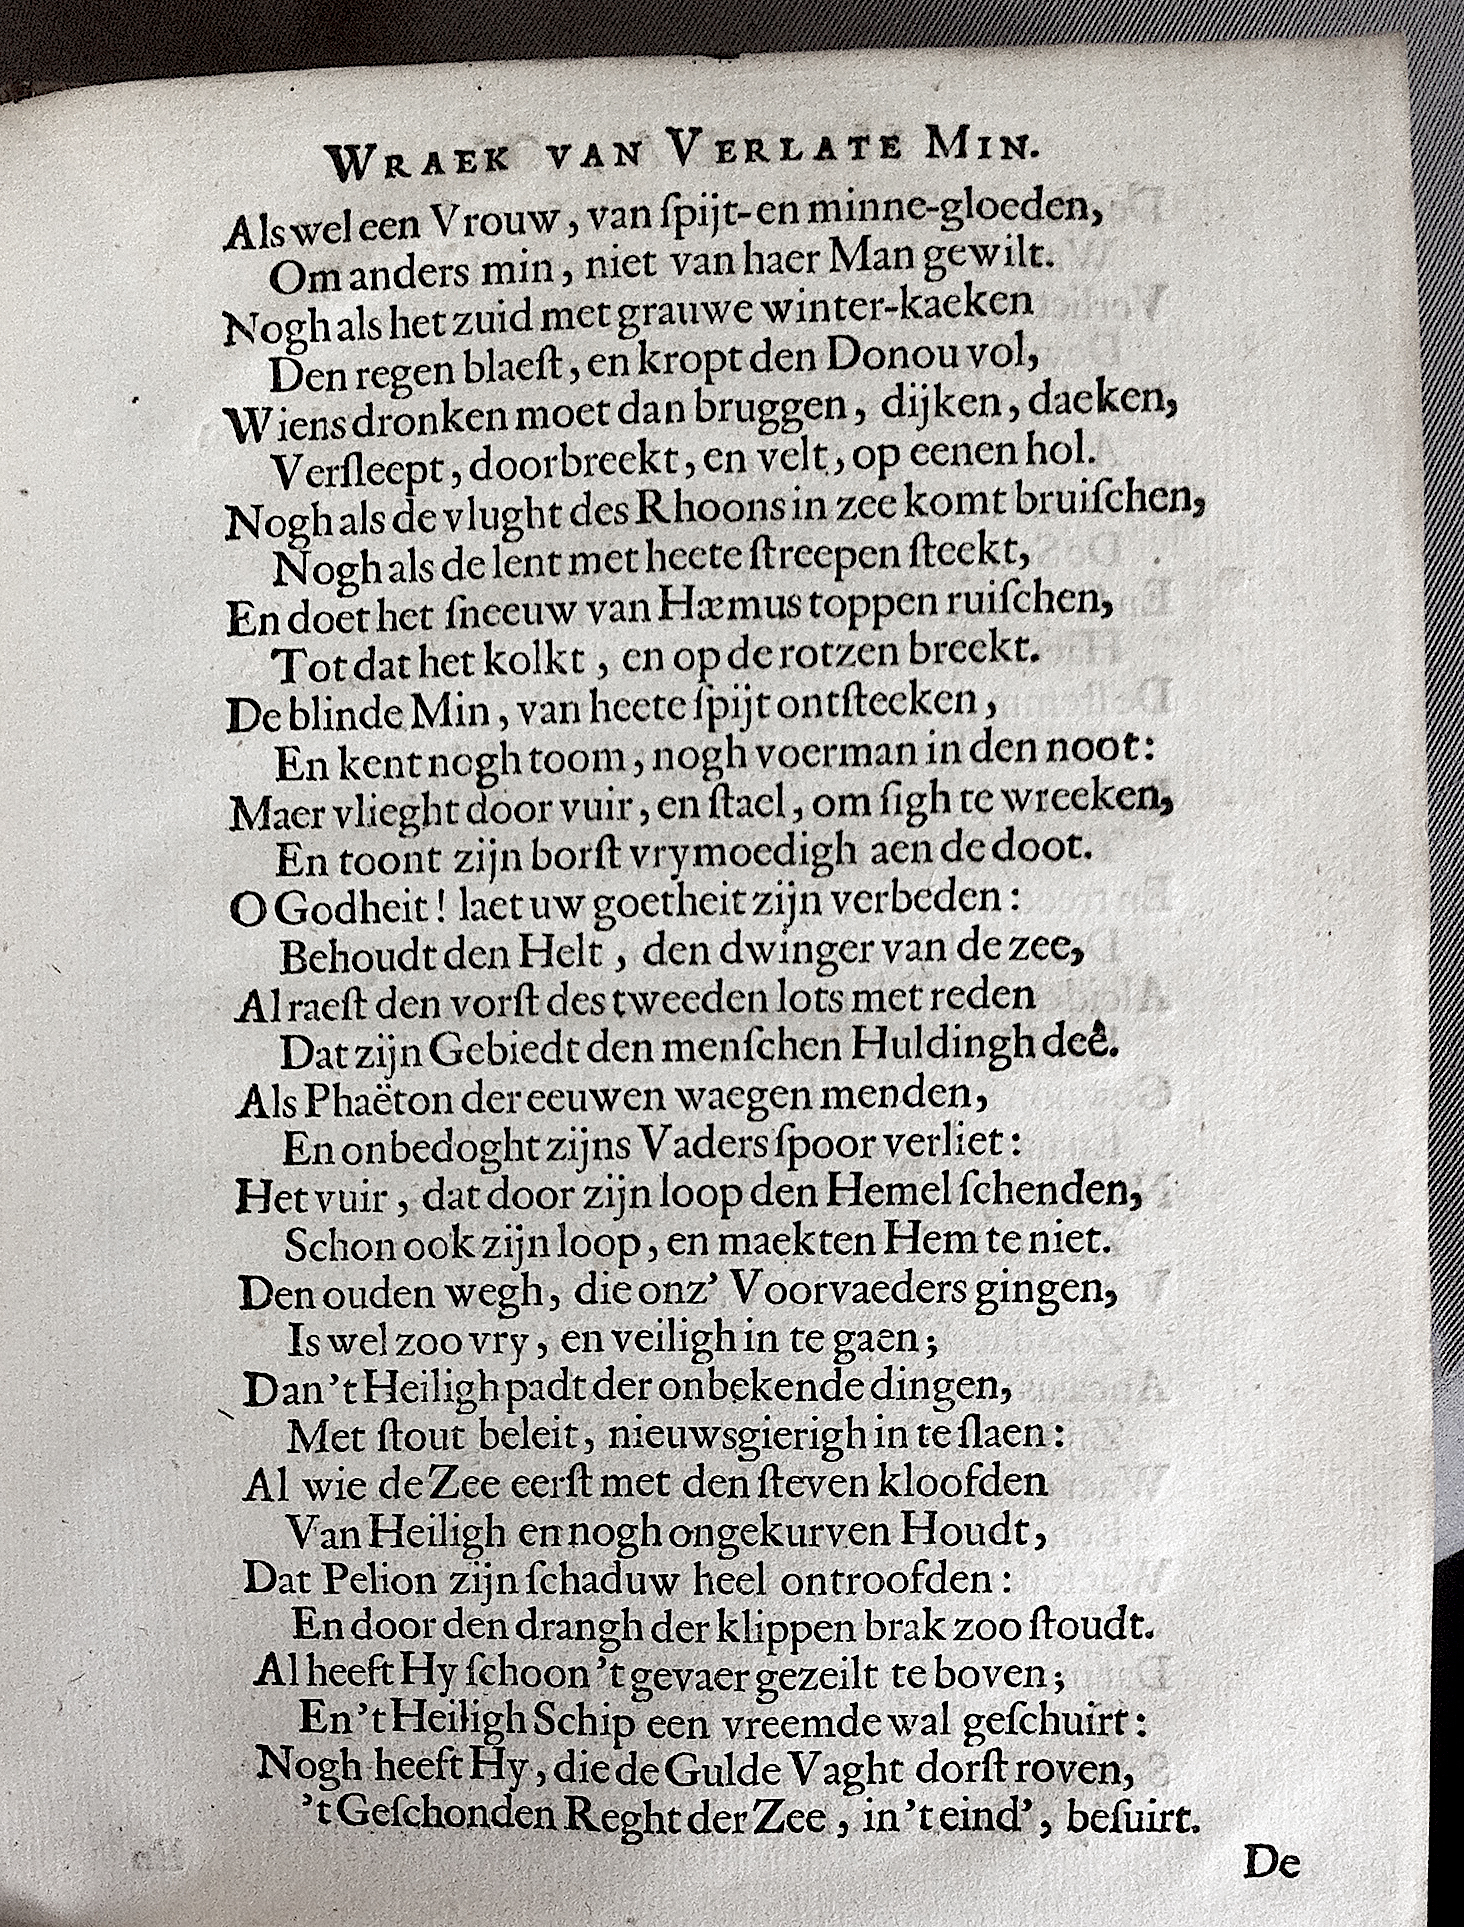 WRAEK VAN VERLATE MIN.
Als wel een Vrouw, van ſpijt-en minne-gloeden,
Om anders min, niet van haer Man gewilt.
Nogh als het zuid met grauwe winter-kaeken
Den regen blaeſt, en kropt den Donou vol,
Wiens dronken moet dan bruggen, dijken, daeken,
Verſleept, doorbreekt, en velt, op eenen hol.
Nogh als de vlught des Rhoons in zee komt bruiſchen,
Nogh als de lent met heete ſtreepen ſteekt,
En doet het ſneeuw van Hæmus toppen ruiſchen,
Tot dat het kolkt, en op de rotzen breekt.
De blinde Min, van heete ſpijt ontſteeken,
En kent nogh toom, nogh voerman in den noot:
Maer vlieght door vuir, en ſtael, om ſigh te wreeken,
En toont zijn borſt vrymoedigh aen de doot.
O Godheit! laet uw goetheit zijn verbeden:
Behoudt den Helt, den dwinger van de zee,
Al raeſt den vorſt des tweeden lots met reden
Dat zijn Gebiedt den menſchen Huldingh deê.
Als Phaëton der eeuwen waegen menden,
En onbedoght zijns Vaders ſpoor verliet:
Het vuir, dat door zijn loop den Hemel ſchenden,
Schon ook zijn loop, en maekten Hem te niet.
Den ouden wegh, die onz' Voorvaeders gingen,
Is wel zoo vry, en veiligh in te gaen;
Dan 't Heiligh padt der onbekende dingen,
Met ſtout beleit, nieuwsgierigh in te ſlaen:
Al wie de Zee eerſt met den ſteven kloofden
Van Heiligh en nogh ongekurven Houdt,
Dat Pelion zijn ſchaduw heel ontroofden:
En door den drangh der klippen brak zoo ſtoudt.
Al heeft Hy ſchoon 't gevaer gezeilt te boven;
En 't Heiligh Schip een vreemde wal geſchuirt:
Nogh heeft Hy, die de Gulde Vaght dorſt roven,
't Geſchonden Reght der Zee, in 't eind', beſuirt.
De